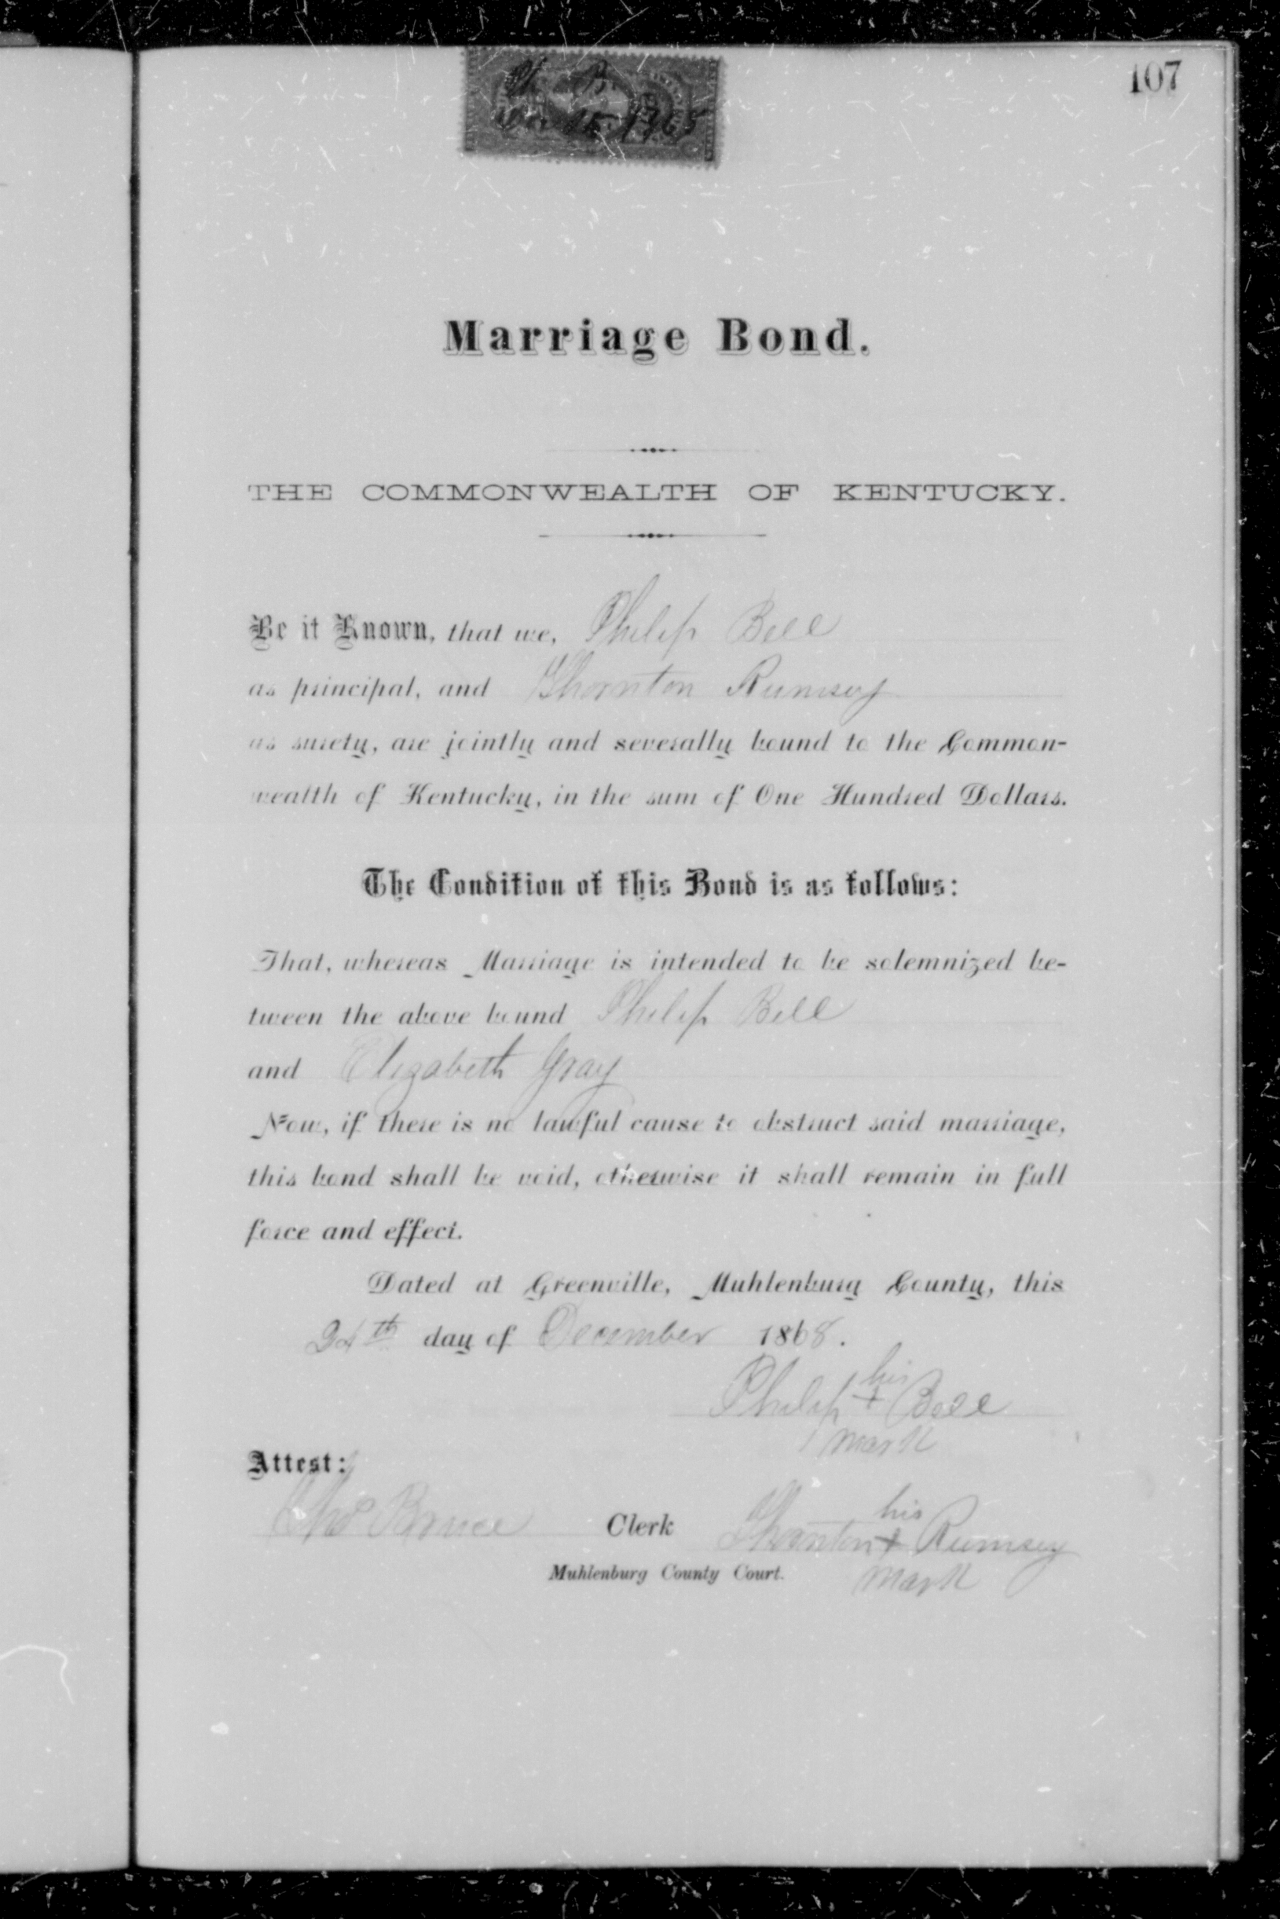 107
Marriage Bond.
THE COMMONWEALTH OF KENTUCKY.
Be it Known, that we, Philip Bell
as principal, and Thornton Rumsey
as surety, are jointly and severally bound to the Common-
wealth of Kentucky, in the sum of One Hundred Dollars.
The Condition of this Bond is as follows:
That, whereas Marriage is intended to be solemnized be-
tween the above bound Philip Bell
and Elizabeth Gray
Now, if there is no lawful cause to obstruct said marriage,
this bond shall be void, otherwise it shall remain in full
force and effect.
Dated at Greenville, Muhlenburg County, this
24th day of December 1868.
his
Philip + Bell
mark
Attest:
Tho Bruce Clerk
his
Thornton + Rumsey
mark
Muhlenburg County Court.